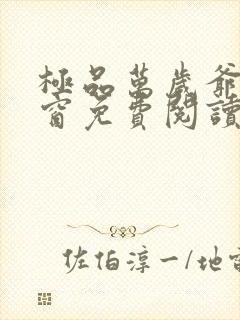 極品萬歲爺
窗免費閱讀
佐伯淳一/地